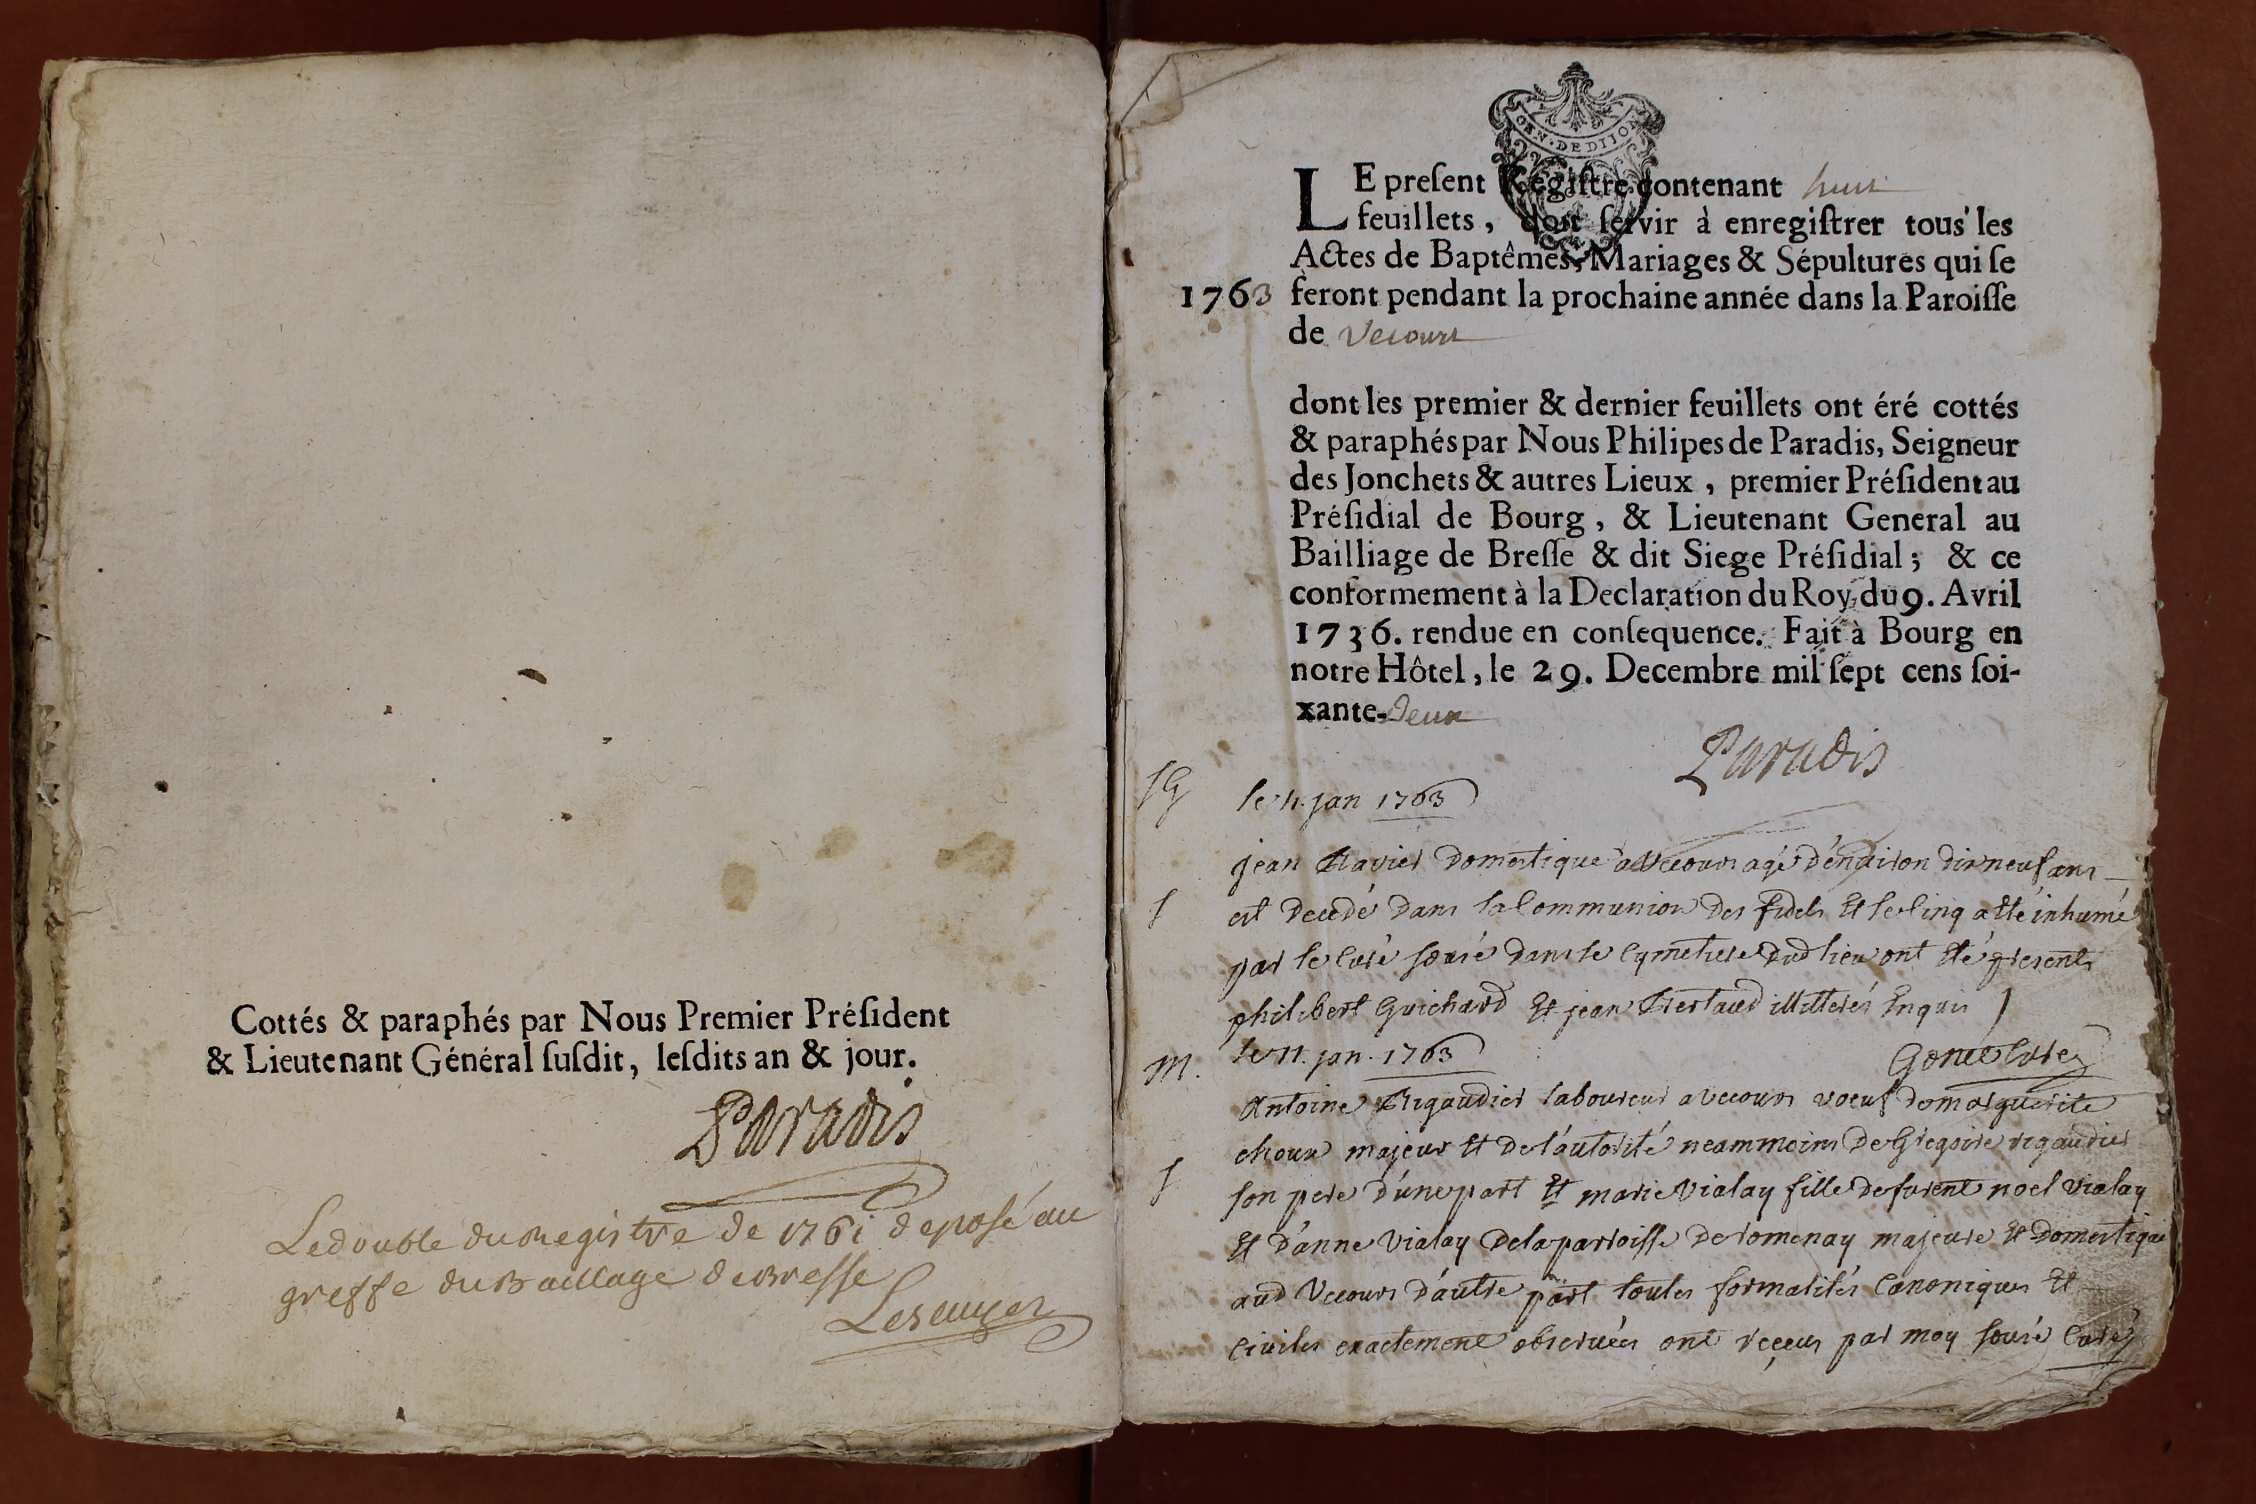 Cottés & paraphés par Nous Premier Préſident
& Lieutenant Général ſuſdit, leſdits an & jour.
Paradis
Le double du Registre de 1761 deposé au
greffe du Baillage de Bresse
GEN. DE DIJON
LE preſent Regiſtre contenant huit
feuillets, doit ſervir à enregiſtrer tous les
Actes de Baptêmes, Mariages & Sépultures qui ſe
1763 feront pendant la prochaine année dans la Paroiſſe
de Vecours
dont les premier & dernier feuillets ont éré cottés
& paraphés par Nous Philipes de Paradis, Seigneur
des Jonchets & autres Lieux, premier Préſident au
Préſidial de Bourg, & Lieutenant General au
Bailliage de Breſſe & dit Siege Préſidial; & ce
conformement à la Declaration du Roy du 9. Avril
1736. rendue en conſequence. Fait à Bourg en
notre Hôtel, le 29. Decembre mil ſept cens ſoi-
xante-Deux
Paradis
le 4. jan 1763
jean Domestique a Vecours agé d'environ dixneuf ans
est decedé dans la Communion des fidels Et le Cinq a Eté inhumé
par le Curé sousé dans le Cymetiere dud lieu ont Eté presents
philibert Guichard Et jean illitterés Enquis
M. le 11. jan. 1763
Curé
Antoine Rigaudier laboureur a vecours voeuf de marguerite
choux majeur Et de l'autorité neammoins de Gregoire rigaudier
son pere d'une part Et marie Vialay fille de furent noel Vialay
Et d'anne Vialay de la parroisse de romenay majeure Et Domestique
aud Vecours d'autre part toutes formalités Canoniques Et
Civiles exactement observées ont reçeus par moy sousé Curé